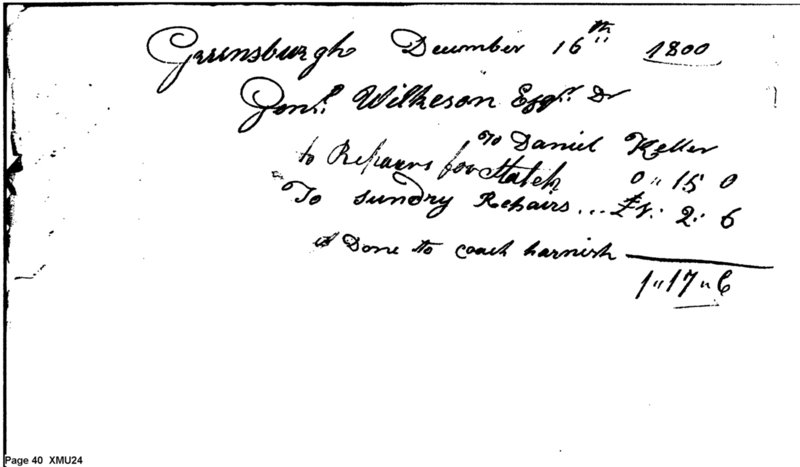 Greensburgh December 16th 1800
Genl. Wilkeson Esqr. Dr
To Daniel Keller
to Repairs for 0 " 15 0
To Sundry Repairs ... £1: 2: 6
Done to coach harnish
1 " 17 " 6
Page 40 XMU24